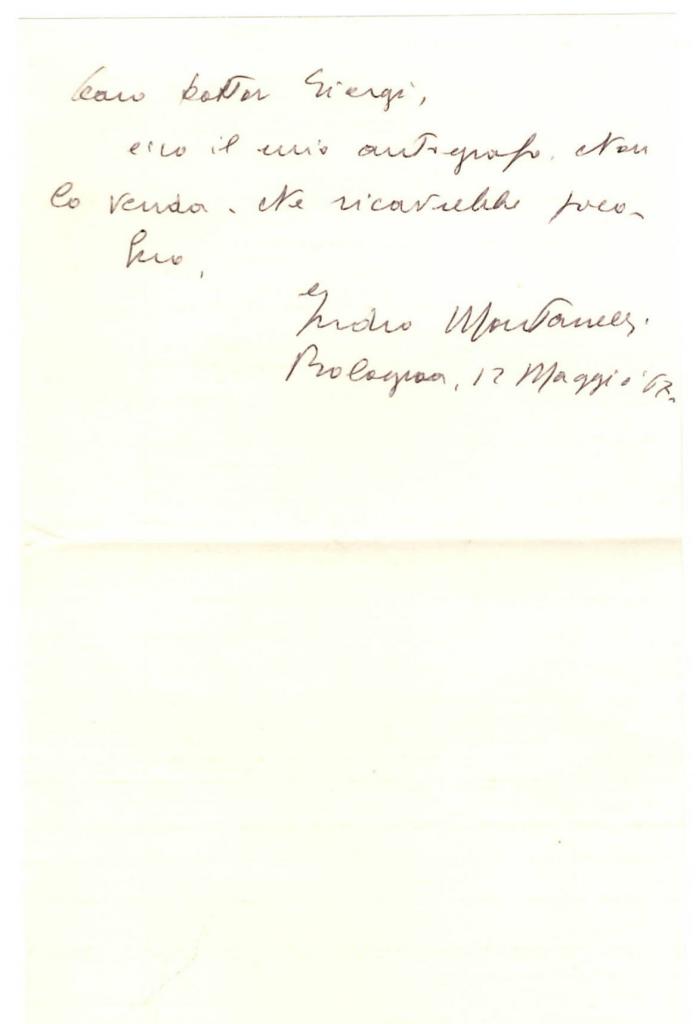 Caro Dottor Giorgi,
ecco il mio autografo. Non
lo venda. Ne ricaverebbe poco.
Suo,
Indro Montanelli.
Bologna, 12 Maggio '67.